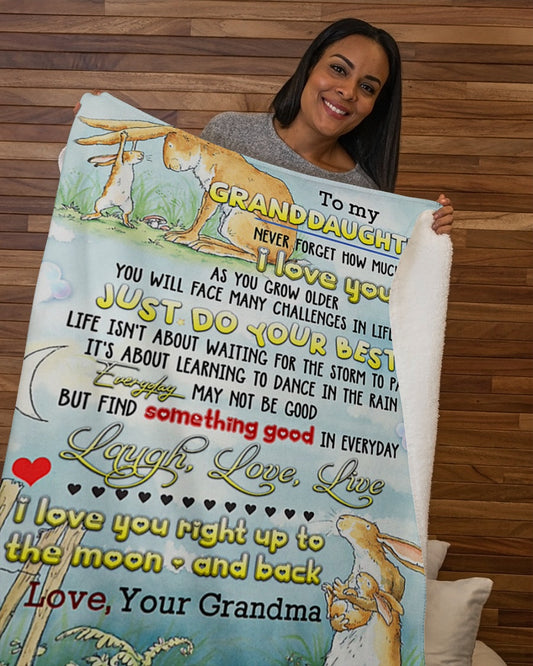 To my
GRANDDAUGHT
NEVER FORGET HOW MUC
i love you
AS YOU GROW OLDER
YOU WILL FACE MANY CHALLENGES IN LIFE
JUST DO YOUR BEST
LIFE ISN'T ABOUT WAITING FOR THE STORM TO PA
IT'S ABOUT LEARNING TO DANCE IN THE RAIN
Everyday MAY NOT BE GOOD
BUT FIND something good IN EVERYDAY
Laugh, Love, Live
i love you right up to
the moon and back
Love, Your Grandma